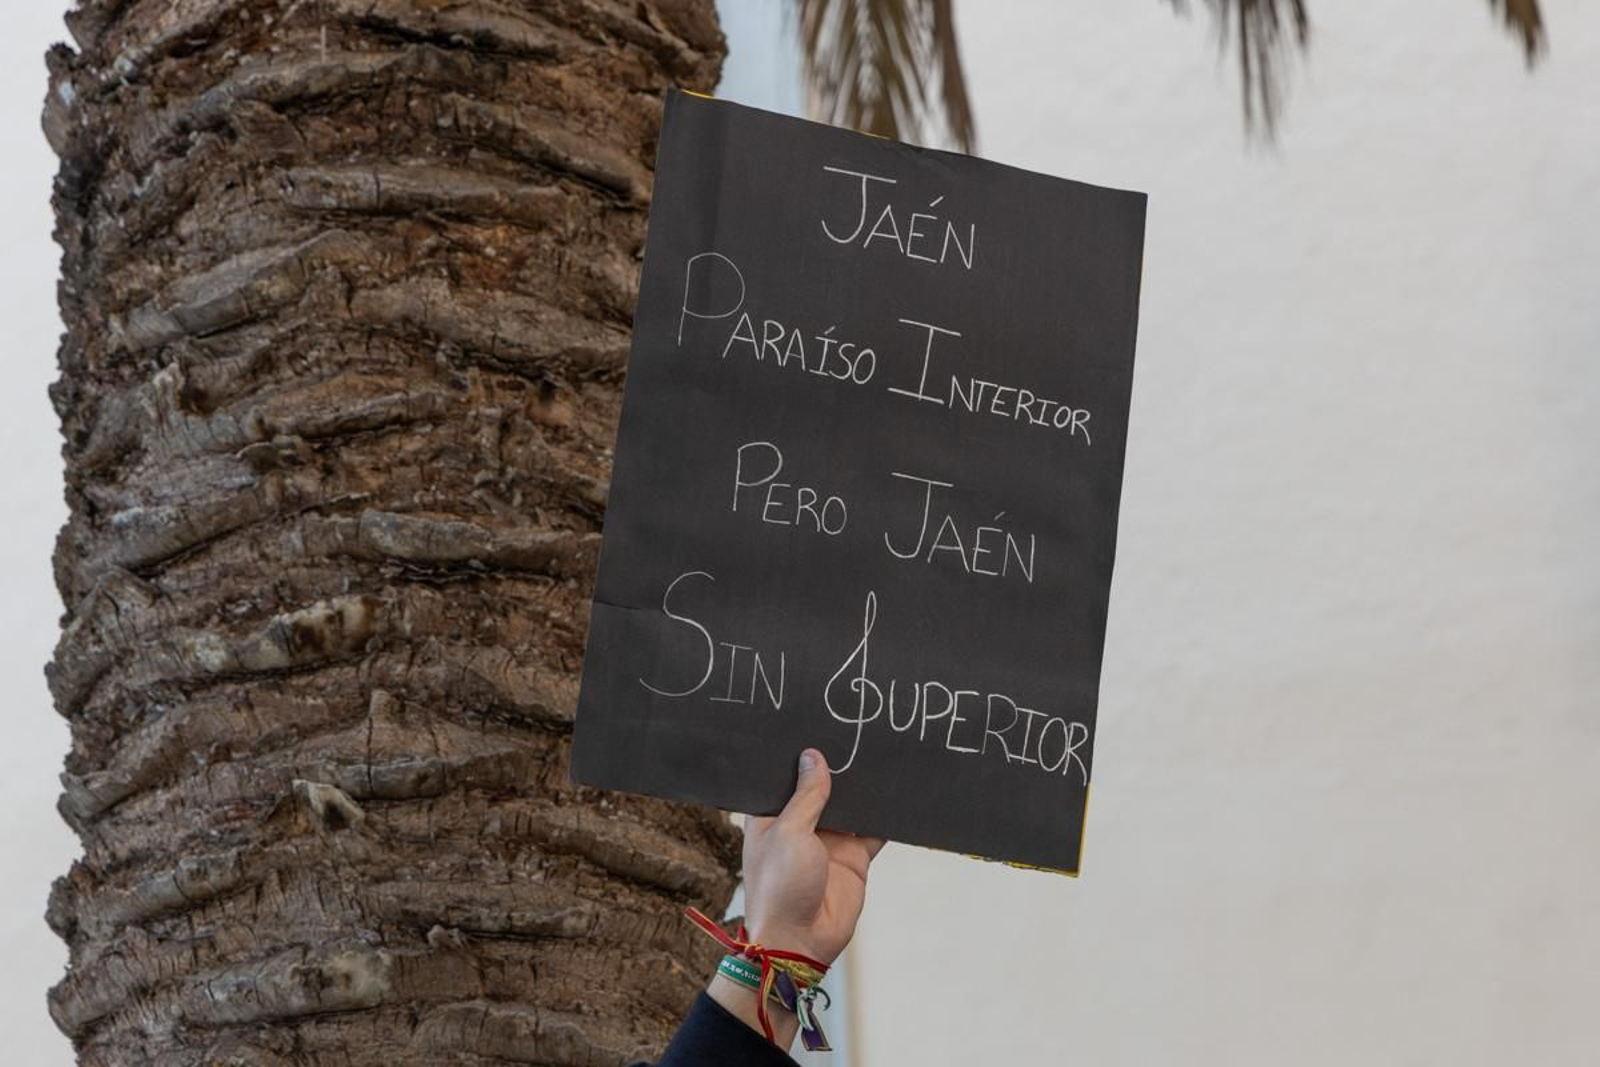 JAÉN
PARAÍSO INTERIOR
PERO JAÉN
SIN SUPERIOR